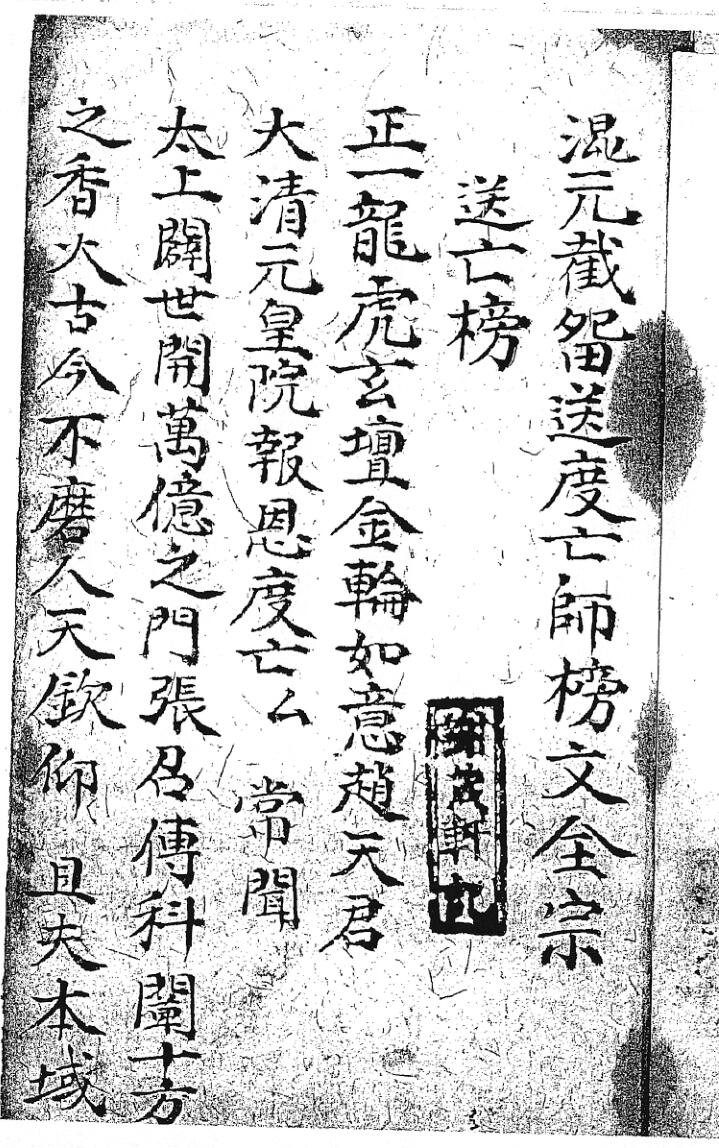 混元截𤲞送度亡師榜文全宗
送亡榜
正一龍虎玄壇金輪如意趙天君
大清元皇院報恩度亡厶 常聞
太上闢世開萬億之門張君傳科闡十方
之香火古今不磨人天欽仰 且夫本域
軒記